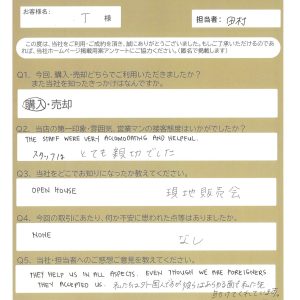 お客様名: T 様
担当者: 田村
この度は、当社をご利用・ご成約を頂き、誠にありがとうございました。もしご了承いただけるのであれば、当社ホームページ掲載用アンケートにご協力ください。(匿名で掲載します)
Q1. 今回、購入・売却どちらでご利用いただきましたか?
また当社を知ったきっかけはなんですか。
購入・売却
Q2. 当店の第一印象・雰囲気、営業マンの接客態度はいかがでしたか?
THE STAFF WERE VERY ACCOMODATING AND HELPFUL.
スタッフは とても親切でした
Q3. 当社をどこでお知りになったか教えてください。
OPEN HOUSE 現地販売会
Q4. 今回の取引にあたり、何か不安に思われた点等はありましたか。
NONE なし
Q5. 当社・担当者へのご感想ご意見を教えてください。
THEY HELP US IN ALL ASPECTS. EVEN THOUGH WE ARE FOREIGNERS
THEY ACCEPTED US. 私たちは外国人だが彼らはあらゆる面で私たちを
助けてくれています。